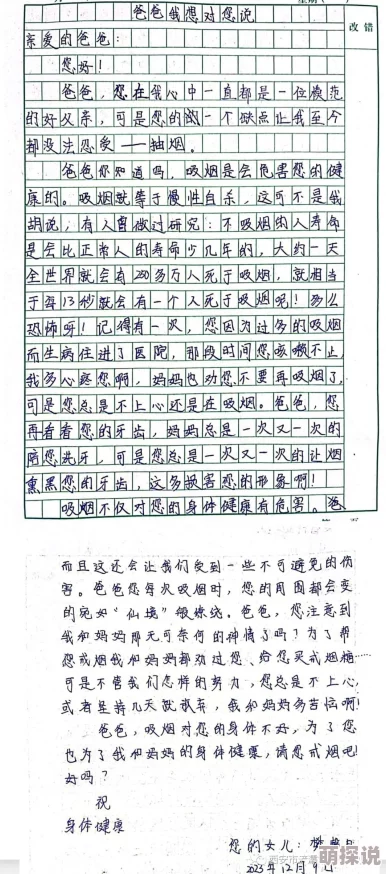 爸爸我想对您说
改错
亲爱的爸爸：
您好！
爸爸，您在我心中一直都是一位模范
的好父亲，可是您的一个缺点让我至今
都没法忍受——抽烟。
爸爸你知道吗，吸烟是会危害您的健
康的。吸烟就等于慢性自杀，这可不是我
胡说，有人曾做过研究：不吸烟的人寿命
是会比正常人的寿命少几年的，大约一天
全世界就会有250多万人死于吸烟，就相当
于每13秒就会有一个人死于吸烟呢！多么
恐怖呀！记得有一次，您因为过多的吸烟
而生病住进了医院，那段时间您咳嗽不止，
我多心疼您啊，妈妈也劝您不要再吸烟了，
可是您总是不上心还是在吸烟。爸爸，您
再看看您的牙齿，妈妈总是一次又一次的
陪您洗牙，可是您总是一次又一次的让烟
熏黑您的牙齿，这多损害您的形象啊！
吸烟不仅对您的身体健康有危害。爸
而且这还会让我们受到一些不可避免的伤
害。爸爸您每次吸烟时，您的周围都会变
的宛如“仙境”缭绕。爸爸，您注意到
我和妈妈那无可奈何的神情了吗？为了帮
您戒烟我和妈妈都劝过您、给您买戒烟糖
可是不管我们怎样的努力，您总是不上心，
或者坚持几天就放弃，我和妈妈多苦恼啊！
爸爸，吸烟对您的身体不好，为了您
也为了我和妈妈的身体健康，请您戒烟吧！
好吗？
祝
身体健康
您的女儿：樊
2023年12月9日
萌探说